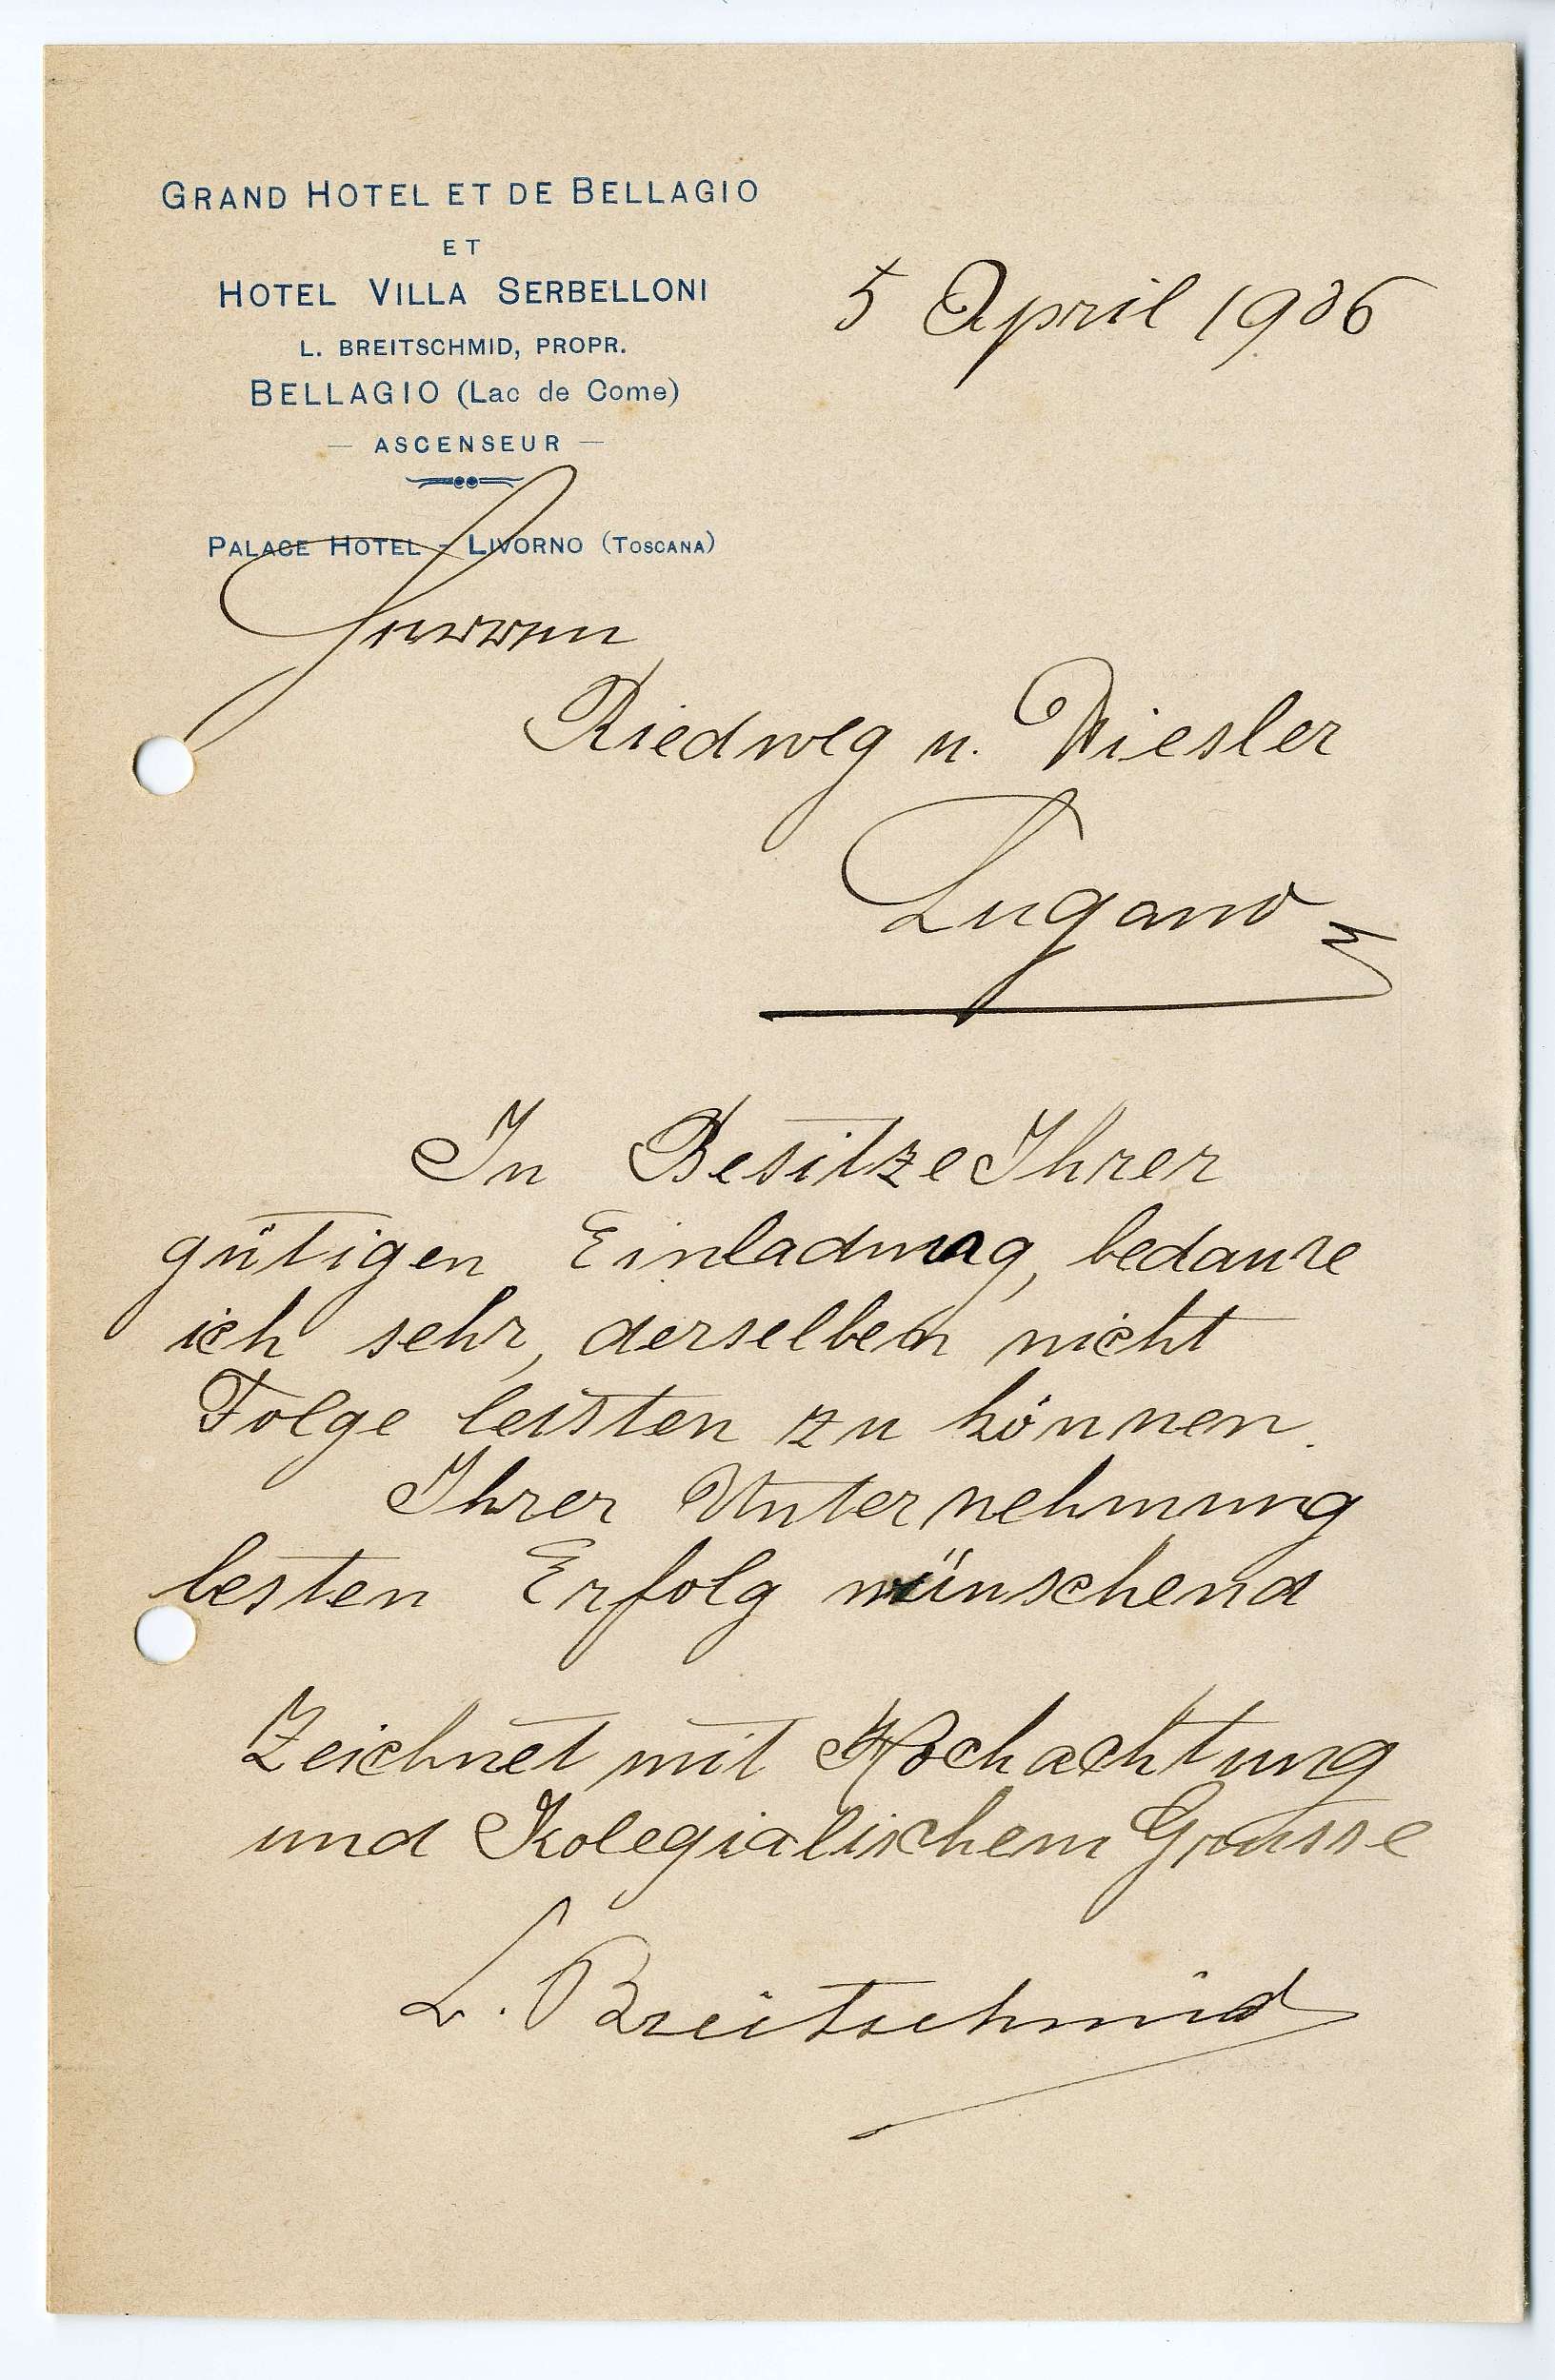 GRAND HOTEL ET DE BELLAGIO
ET
HOTEL VILLA SERBELLONI
L. BREITSCHMID, PROPR.
BELLAGIO (Lac de Come)
— ASCENSEUR —
PALACE HOTEL - LIVORNO (TOSCANA)
5 April 1906
Herren
Riedweg u. Wiesler
Lugano
In Besitze Ihrer
gütigen Einladung, bedaure
ich sehr, derselben nicht
Folge leisten zu können.
Ihrer Unternehmung
besten Erfolg wünschend
Zeichnet mit Hochachtung
und Kolegialischem Grusse
L. Breitschmid